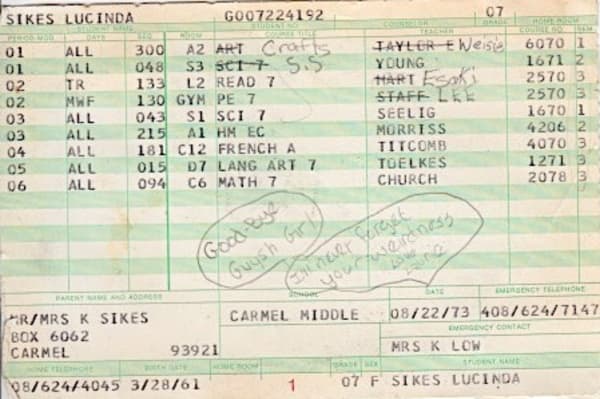 SIKES LUCINDA G007224192 07
STUDENT NAME STUDENT NO. COUNSELOR GRADE HOME ROOM
PERIOD-MOD DAYS SEQ ROOM COURSE TITLE TEACHER COURSE NO. SEM
01 ALL 300 A2 ART Crafts TAYLOR E Weisie 6070 1
01 ALL 048 S3 SCI 7 S.S YOUNG 1671 2
02 TR 133 L2 READ 7 HART Esaki 2570 3
02 MWF 130 GYM PE 7 STAFF LEE 2570 3
03 ALL 043 S1 SCI 7 SEELIG 1670 1
03 ALL 215 A1 HM EC MORRISS 4206 2
04 ALL 181 C12 FRENCH A TITCOMB 4070 3
05 ALL 015 D7 LANG ART 7 TOELKES 1271 3
06 ALL 094 C6 MATH 7 CHURCH 2078 3
Good-Bye
Guysh Girl
I'll never forget
your weirdness
Love
PARENT NAME AND ADDRESS SCHOOL DATE EMERGENCY TELEPHONE
MR/MRS K SIKES CARMEL MIDDLE 08/22/73 408/624/7147
BOX 6062 EMERGENCY CONTACT
CARMEL 93921 MRS K LOW
HOME TELEPHONE BIRTH DATE HOME ROOM GRADE SEX STUDENT NAME
08/624/4045 3/28/61 1 07 F SIKES LUCINDA